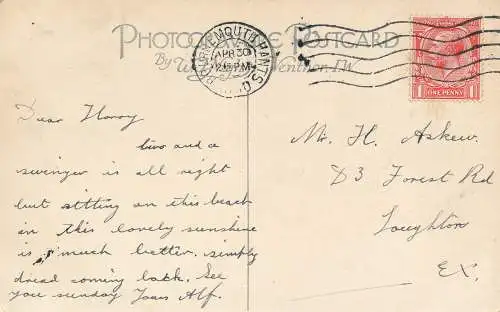 PHOTOGRAVURE POSTCARD
By W. Ventnor, I.W.
BOURNEMOUTH HANTS.
APR 30
PM
ONE PENNY
Dear Harry
two and a
swinger is all right
but sitting on this beach
in this lovely sunshine
is much better. simply
dread coming back. See
you sunday Yours Alf.
Mr. H. Askew.
D3 Forest Rd
Loughton
Ex.